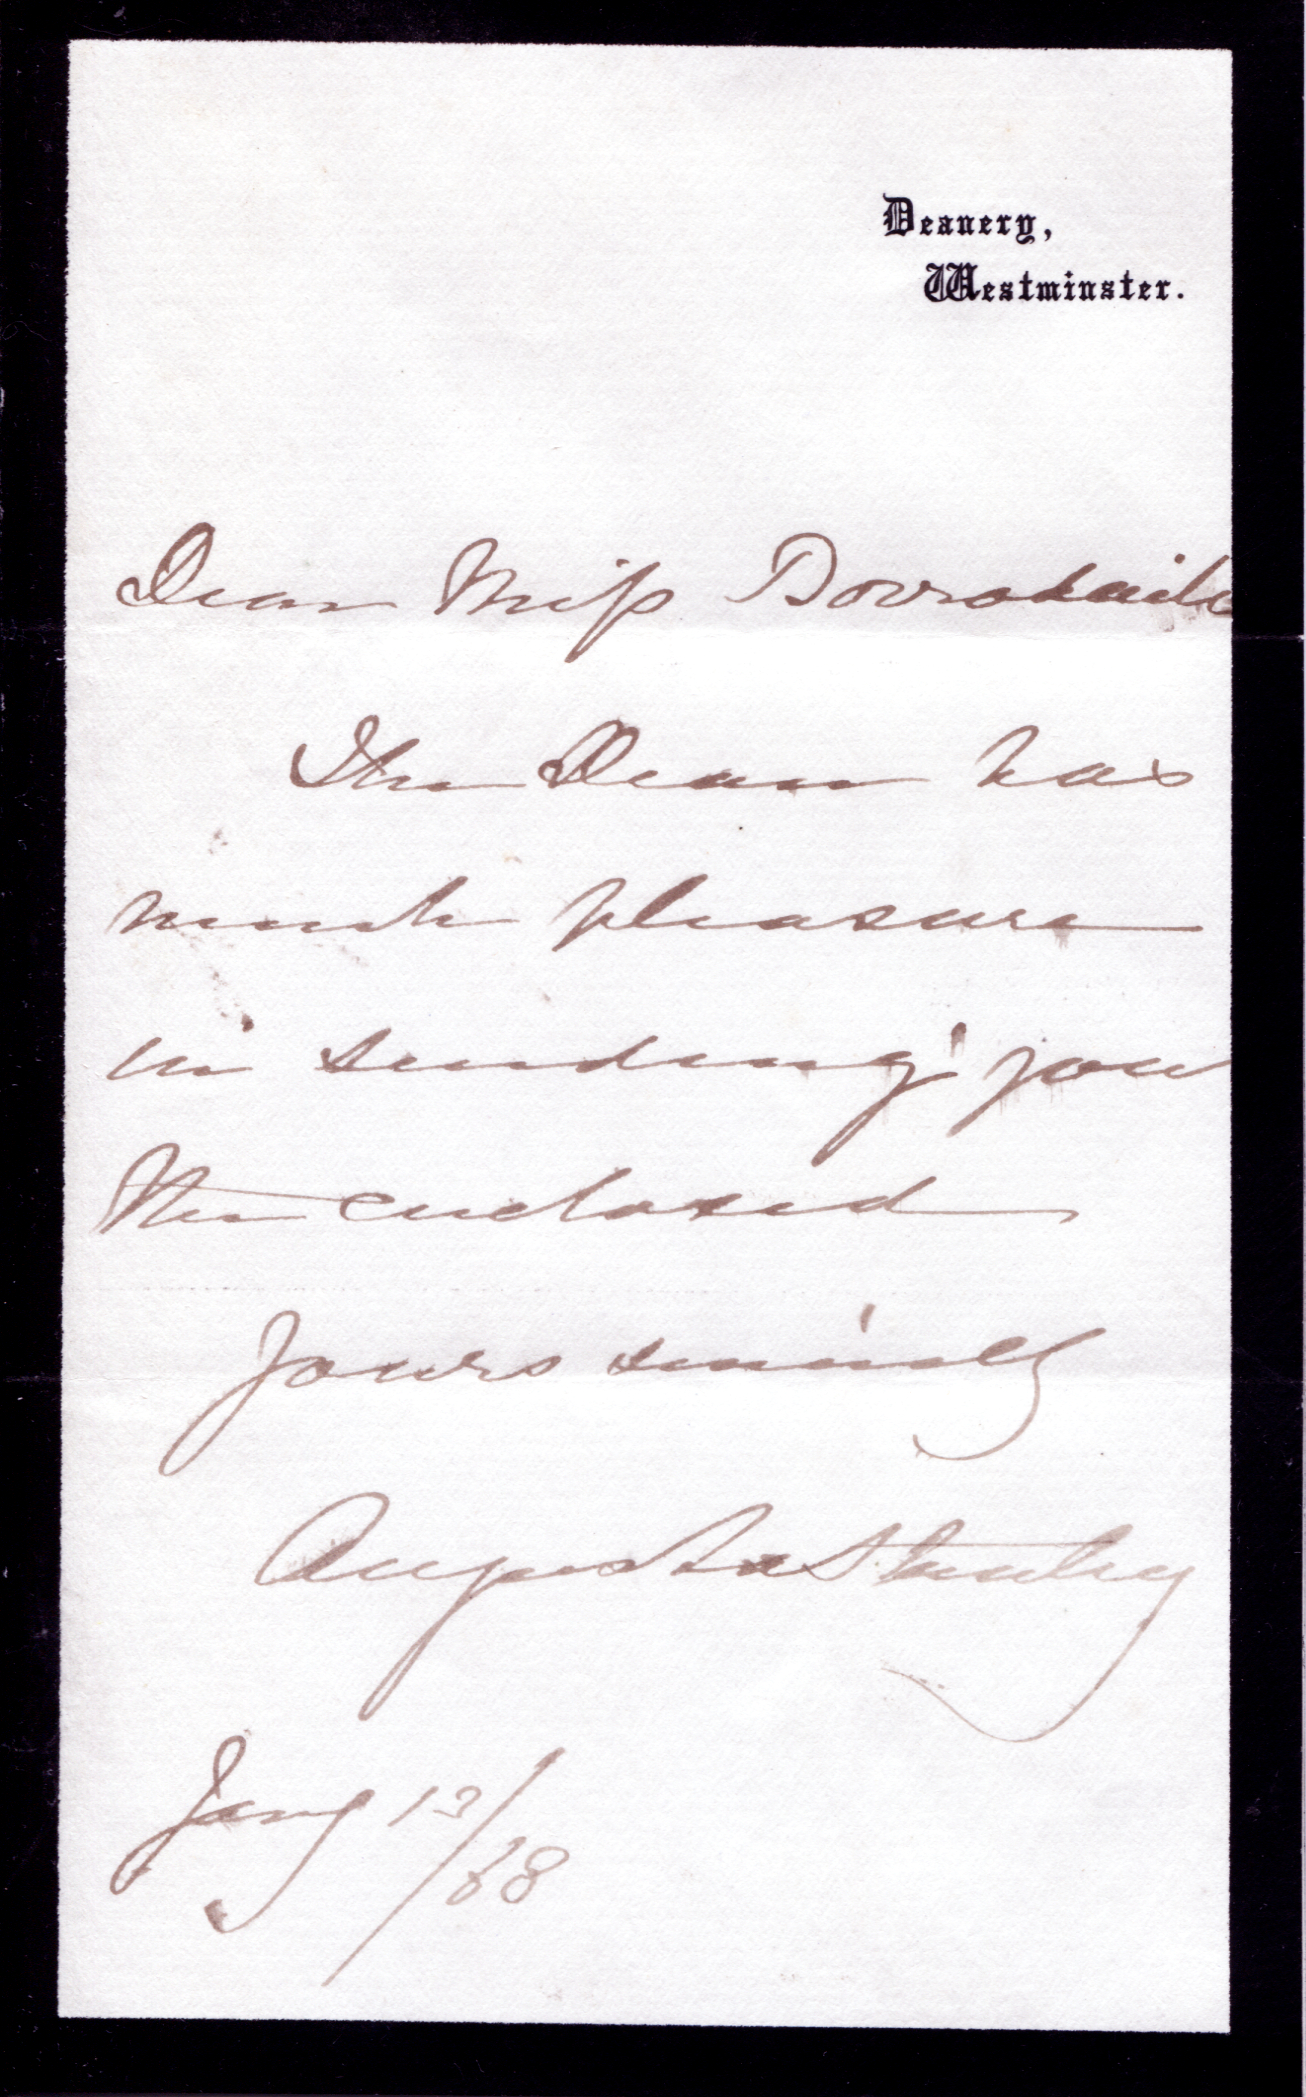 Deanery,
Westminster.
Dear Miss Borrodaile
The Dean has
much pleasure
in sending you
the enclosed
Yours sincerely
Augusta Stanley
Jany 13/68